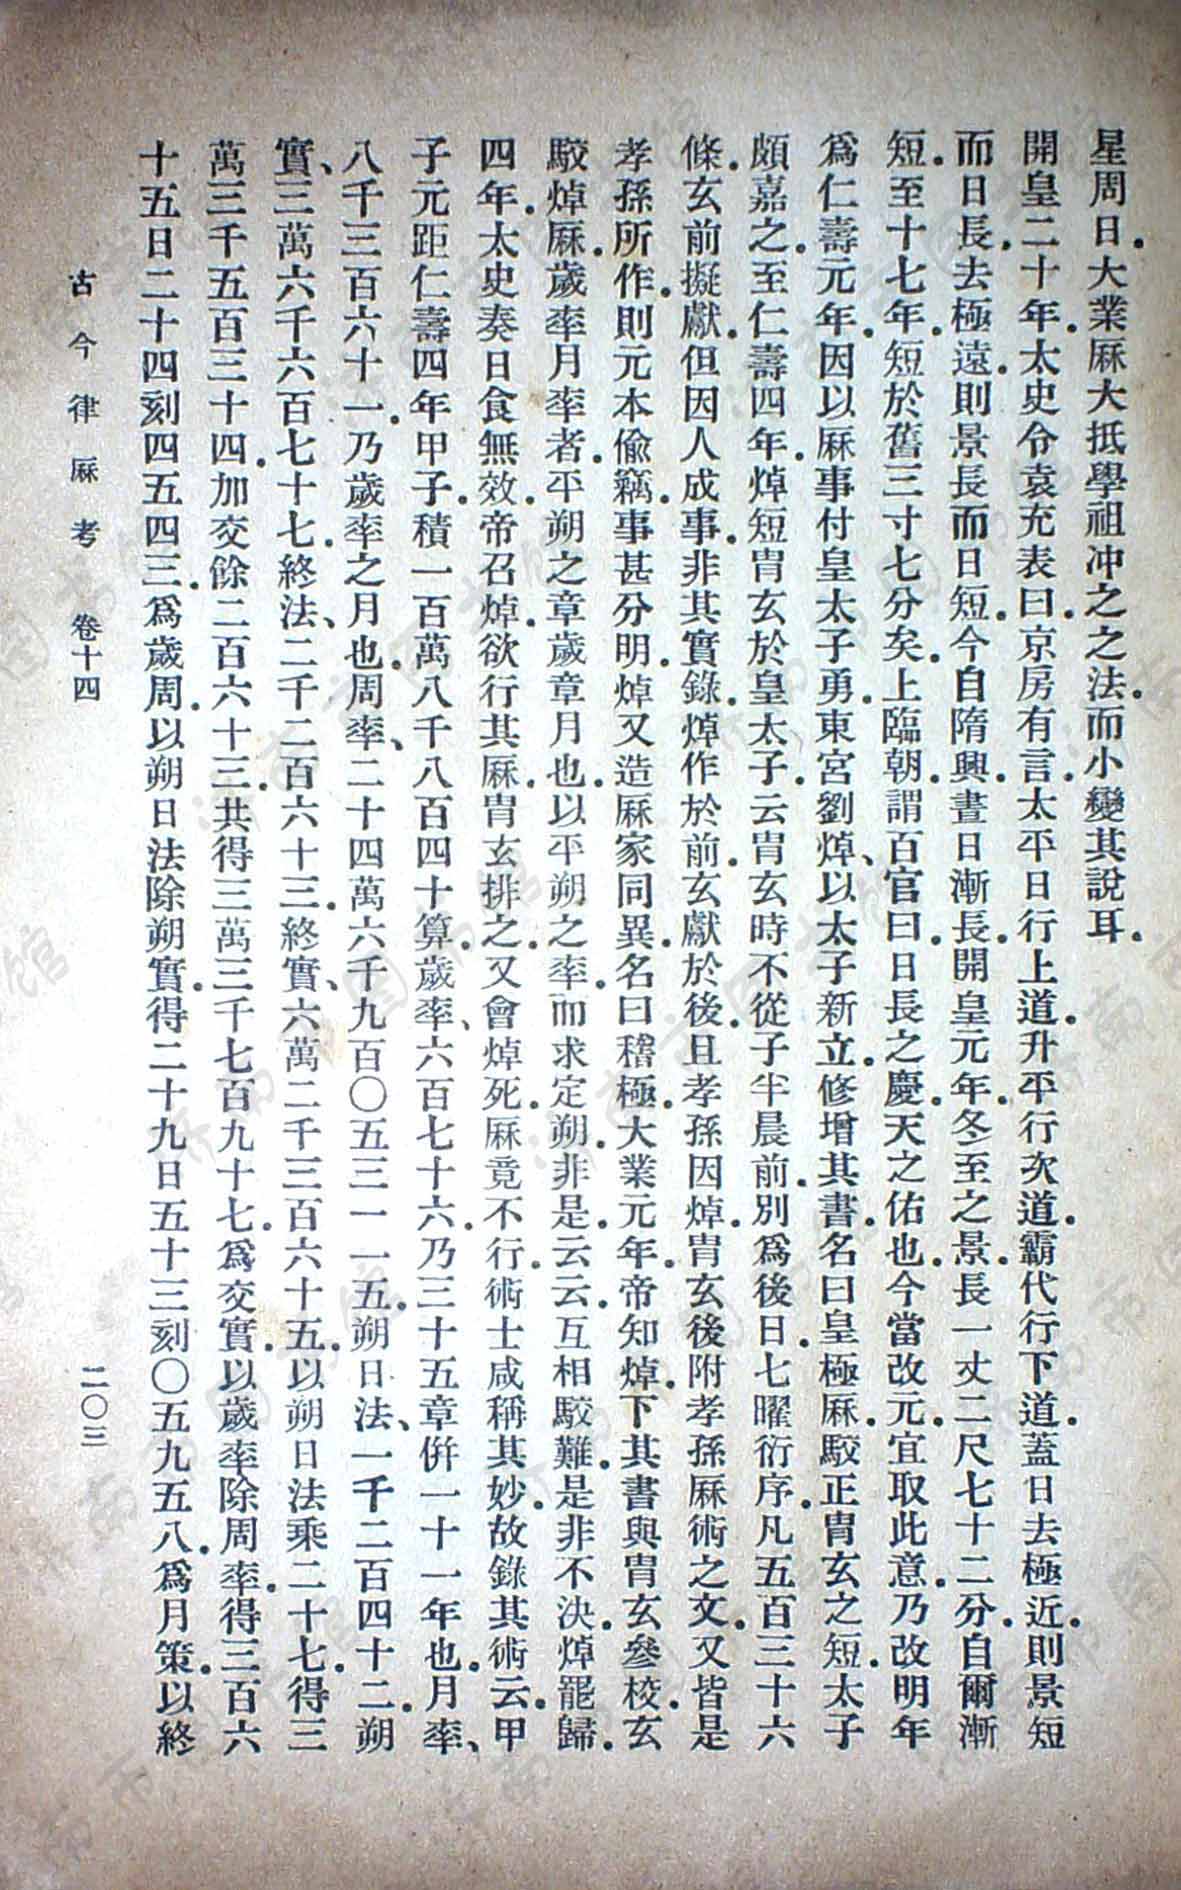 星周日．大業厤大抵學祖沖之之法．而小變其說耳．
開皇二十年．太史令袁充表曰．京房有言．太平日行上道．升平行次道．霸代行下道．蓋日去極近．則景短
而日長．去極遠．則景長而日短．今自隋興．晝日漸長．開皇元年．冬至之景．長一丈二尺七十二分．自爾漸
短．至十七年．短於舊三寸七分矣．上臨朝．謂百官曰．日長之慶．天之佑也．今當改元．宜取此意．乃改明年
爲仁壽元年．因以厤事付皇太子勇．東宮劉焯、以太子新立．修增其書．名曰皇極厤．駮正胄玄之短．太子
頗嘉之．至仁壽四年．焯短胄玄於皇太子．云胄玄時不從子半晨前．別爲後日．七曜衍序．凡五百三十六
條．玄前擬獻．但因人成事．非其實錄．焯作於前．玄獻於後．且孝孫因焯．胄玄後附孝孫厤術之文．又皆是
孝孫所作．則元本偸竊．事甚分明．焯又造厤家同異．名曰稽極．大業元年．帝知焯．下其書與胄玄參校．玄
駮焯厤．歲率月率者．平朔之章歲章月也．以平朔之率．而求定朔．非是．云云．互相駮難．是非不決．焯罷歸．
四年．太史奏日食無效．帝召焯．欲行其厤．胄玄排之．又會焯死．厤竟不行．術士咸稱其妙．故錄其術云．甲
子元距仁壽四年甲子．積一百萬八千八百四十算．歲率、六百七十六．乃三十五章併一十一年也．月率、
八千三百六十一．乃歲率之月也．周率、二十四萬六千九百〇五三一一五．朔日法、一千二百四十二．朔
實、三萬六千六百七十七．終法、二千二百六十三．終實、六萬二千三百六十五．以朔日法乘二十七．得三
萬三千五百三十四．加交餘二百六十三．共得三萬三千七百九十七．爲交實．以歲率除周率．得三百六
十五日二十四刻四五四三．爲歲周．以朔日法除朔實．得二十九日五十三刻〇五九五八．爲月策．以終
古今律厤考　卷十四　二〇三